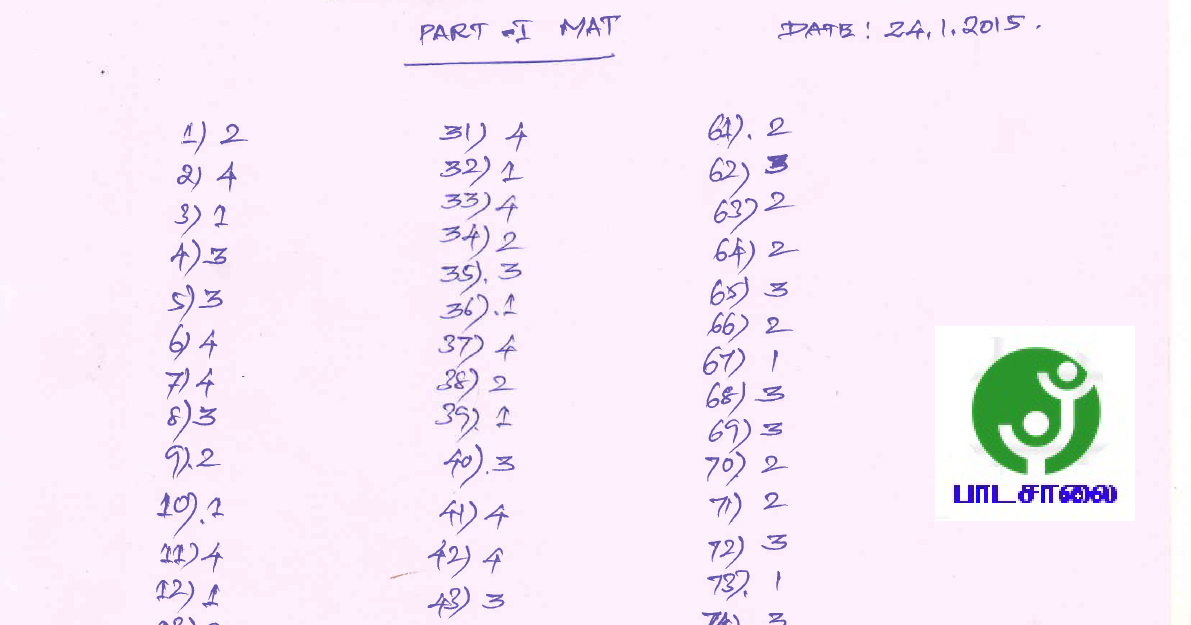 PART - I MAT
DATE : 24.1.2015.
1) 2
2) 4
3) 1
4) 3
5) 3
6) 4
7) 4
8) 3
9). 2
10). 1
11) 4
12) 1
31) 4
32) 1
33) 4
34) 2
35). 3
36). 1
37) 4
38) 2
39). 1
40). 3
41) 4
42) 4
43) 3
61). 2
62) 3
63) 2
64) 2
65) 3
66) 2
67) 1
68) 3
69) 3
70) 2
71) 2
72) 3
73). 1
74) 3
பாடசாலை